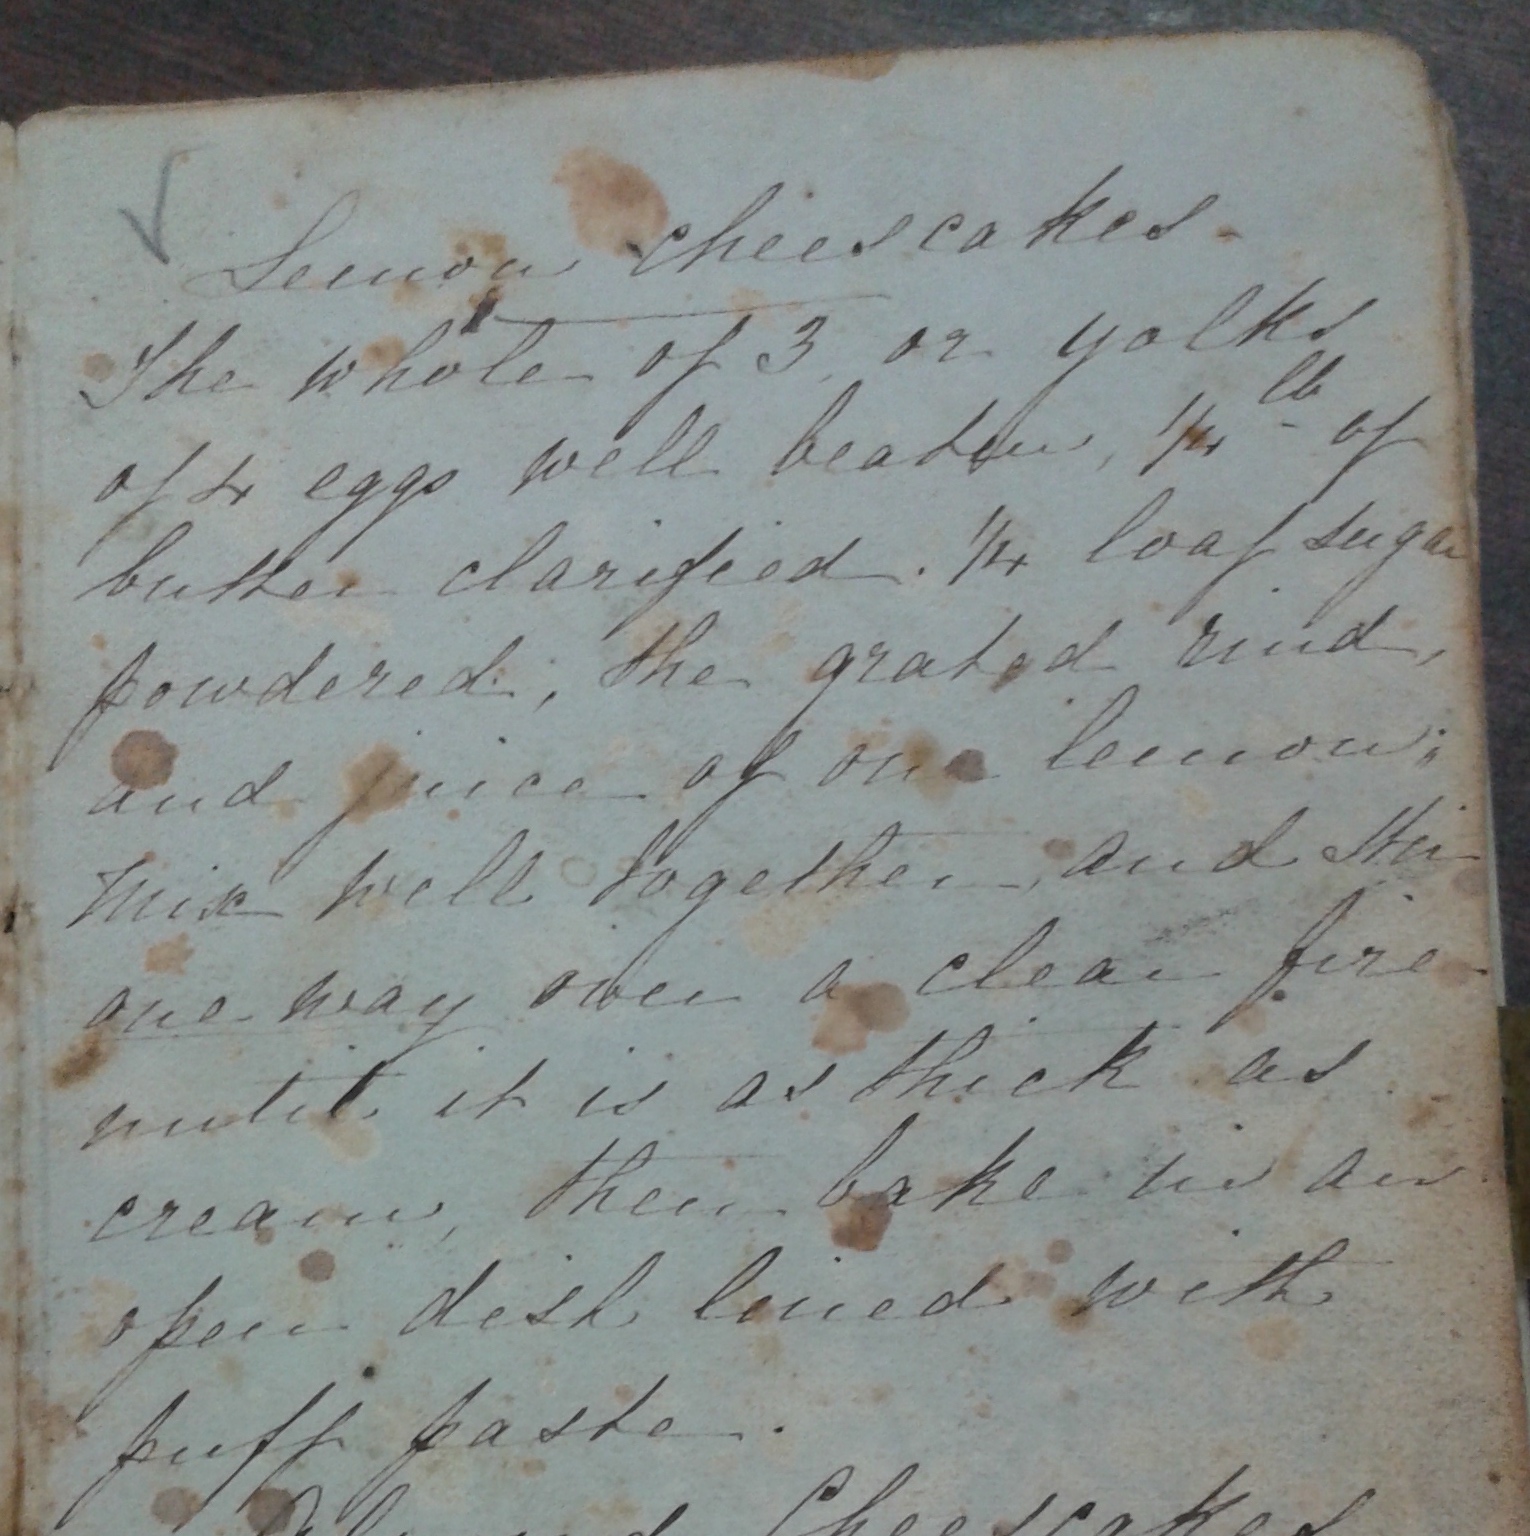 Lemon cheescakes.
The whole of 3, or yolks
of 4 eggs well beaten, 1/4 lb of
butter clarified. 1/4 loaf sugar
powdered, the grated rind,
and juice of one lemon;
mix well together, and stir
one way over a clear fire
until it is as thick as
cream, then bake in an
open dish lined with
puff paste.
Almond Cheescakes